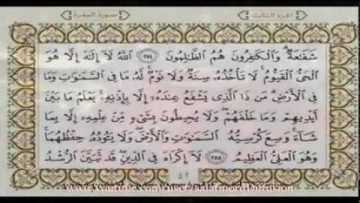 الجزء الثالث سورة البقرة
شَفَٰعَةٌ وَٱلْكَٰفِرُونَ هُمُ ٱلظَّٰلِمُونَ ٢٥٤ ٱللَّهُ لَآ إِلَٰهَ إِلَّا هُوَ
ٱلْحَىُّ ٱلْقَيُّومُ لَا تَأْخُذُهُۥ سِنَةٌ وَلَا نَوْمٌ لَّهُۥ مَا فِى ٱلسَّمَٰوَٰتِ وَمَا
فِى ٱلْأَرْضِ مَن ذَا ٱلَّذِى يَشْفَعُ عِندَهُۥٓ إِلَّا بِإِذْنِهِۦ يَعْلَمُ مَا بَيْنَ
أَيْدِيهِمْ وَمَا خَلْفَهُمْ وَلَا يُحِيطُونَ بِشَىْءٍ مِّنْ عِلْمِهِۦٓ إِلَّا بِمَا
شَآءَ وَسِعَ كُرْسِيُّهُ ٱلسَّمَٰوَٰتِ وَٱلْأَرْضَ وَلَا يَـُٔودُهُۥ حِفْظُهُمَا
وَهُوَ ٱلْعَلِىُّ ٱلْعَظِيمُ ٢٥٥ لَآ إِكْرَاهَ فِى ٱلدِّينِ قَد تَّبَيَّنَ ٱلرُّشْدُ
٤٢